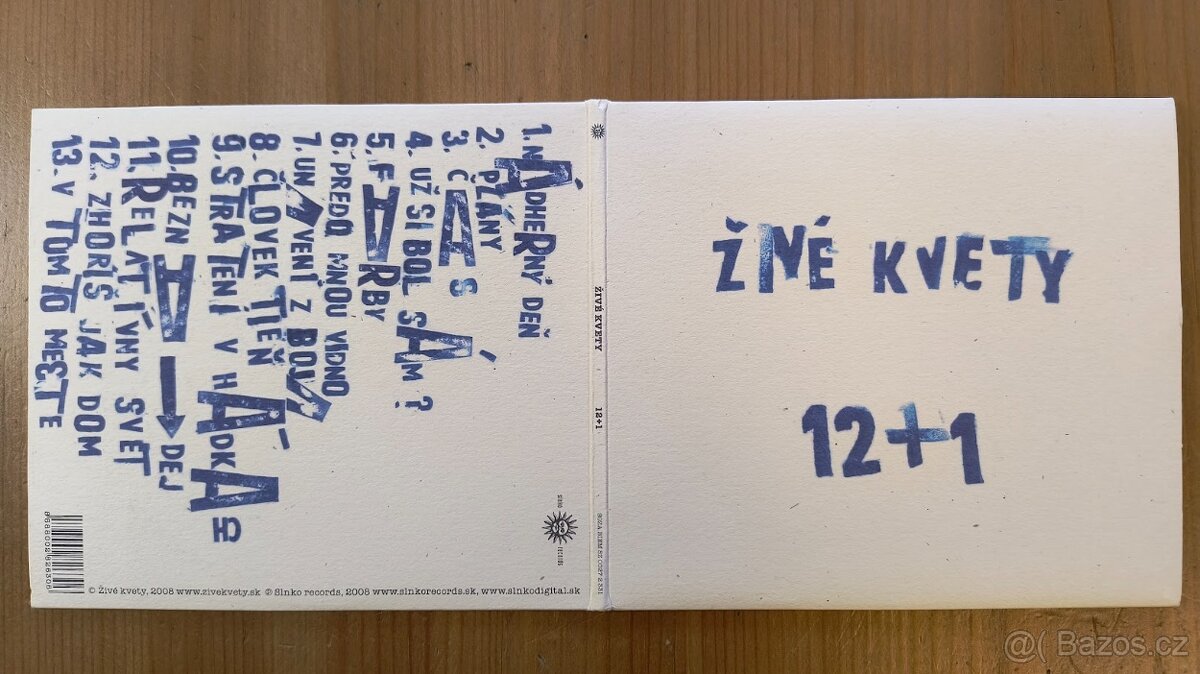 1. NÁDHERNÝ DEŇ
2. PLÁNY
3. ČAS
4. UŽ SI BOL SÁM?
5. FARBY
6. PREDO MNOU VIDNO
7. UNAVENÍ Z BOJA
8. ČLOVEK TIEŇ
9. STRATENÍ V HÁDKACH
10. BEZNÁDEJ
11. RELATÍVNY SVET
12. ZHORÍŠ JAK DOM
13. V TOMTO MESTE
© Živé kvety, 2008 www.zivekvety.sk ℗ Slnko records, 2008 www.slnkorecords.sk, www.slnkodigital.sk
slnko
records
ŽIVÉ KVETY
12+1
ŽIVÉ KVETY
12+1
@( Bazos.cz